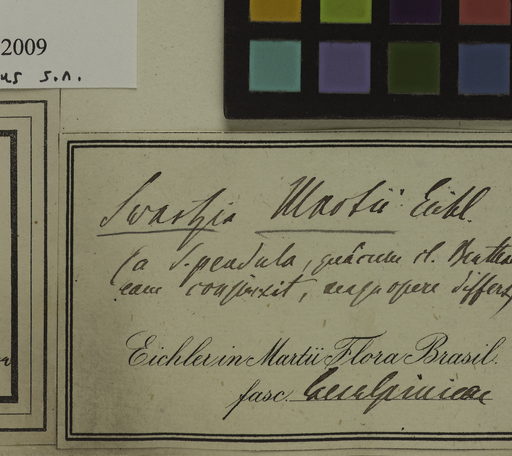 2009
us s.n.
Swartzia Martii Eichl.
(a S. pendula, quacum cl. Benth
eam conjunxit, magnopere differt)
Eichler in Martii Flora Brasil.
fasc. Caesalpinieae